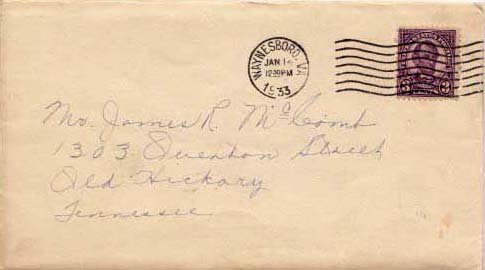 WAYNESBORO, VA.
JAN 14
12:30 PM
1933
3 3
Mr. James R. McComb
1303 Street
Old Hickory
Tennessee